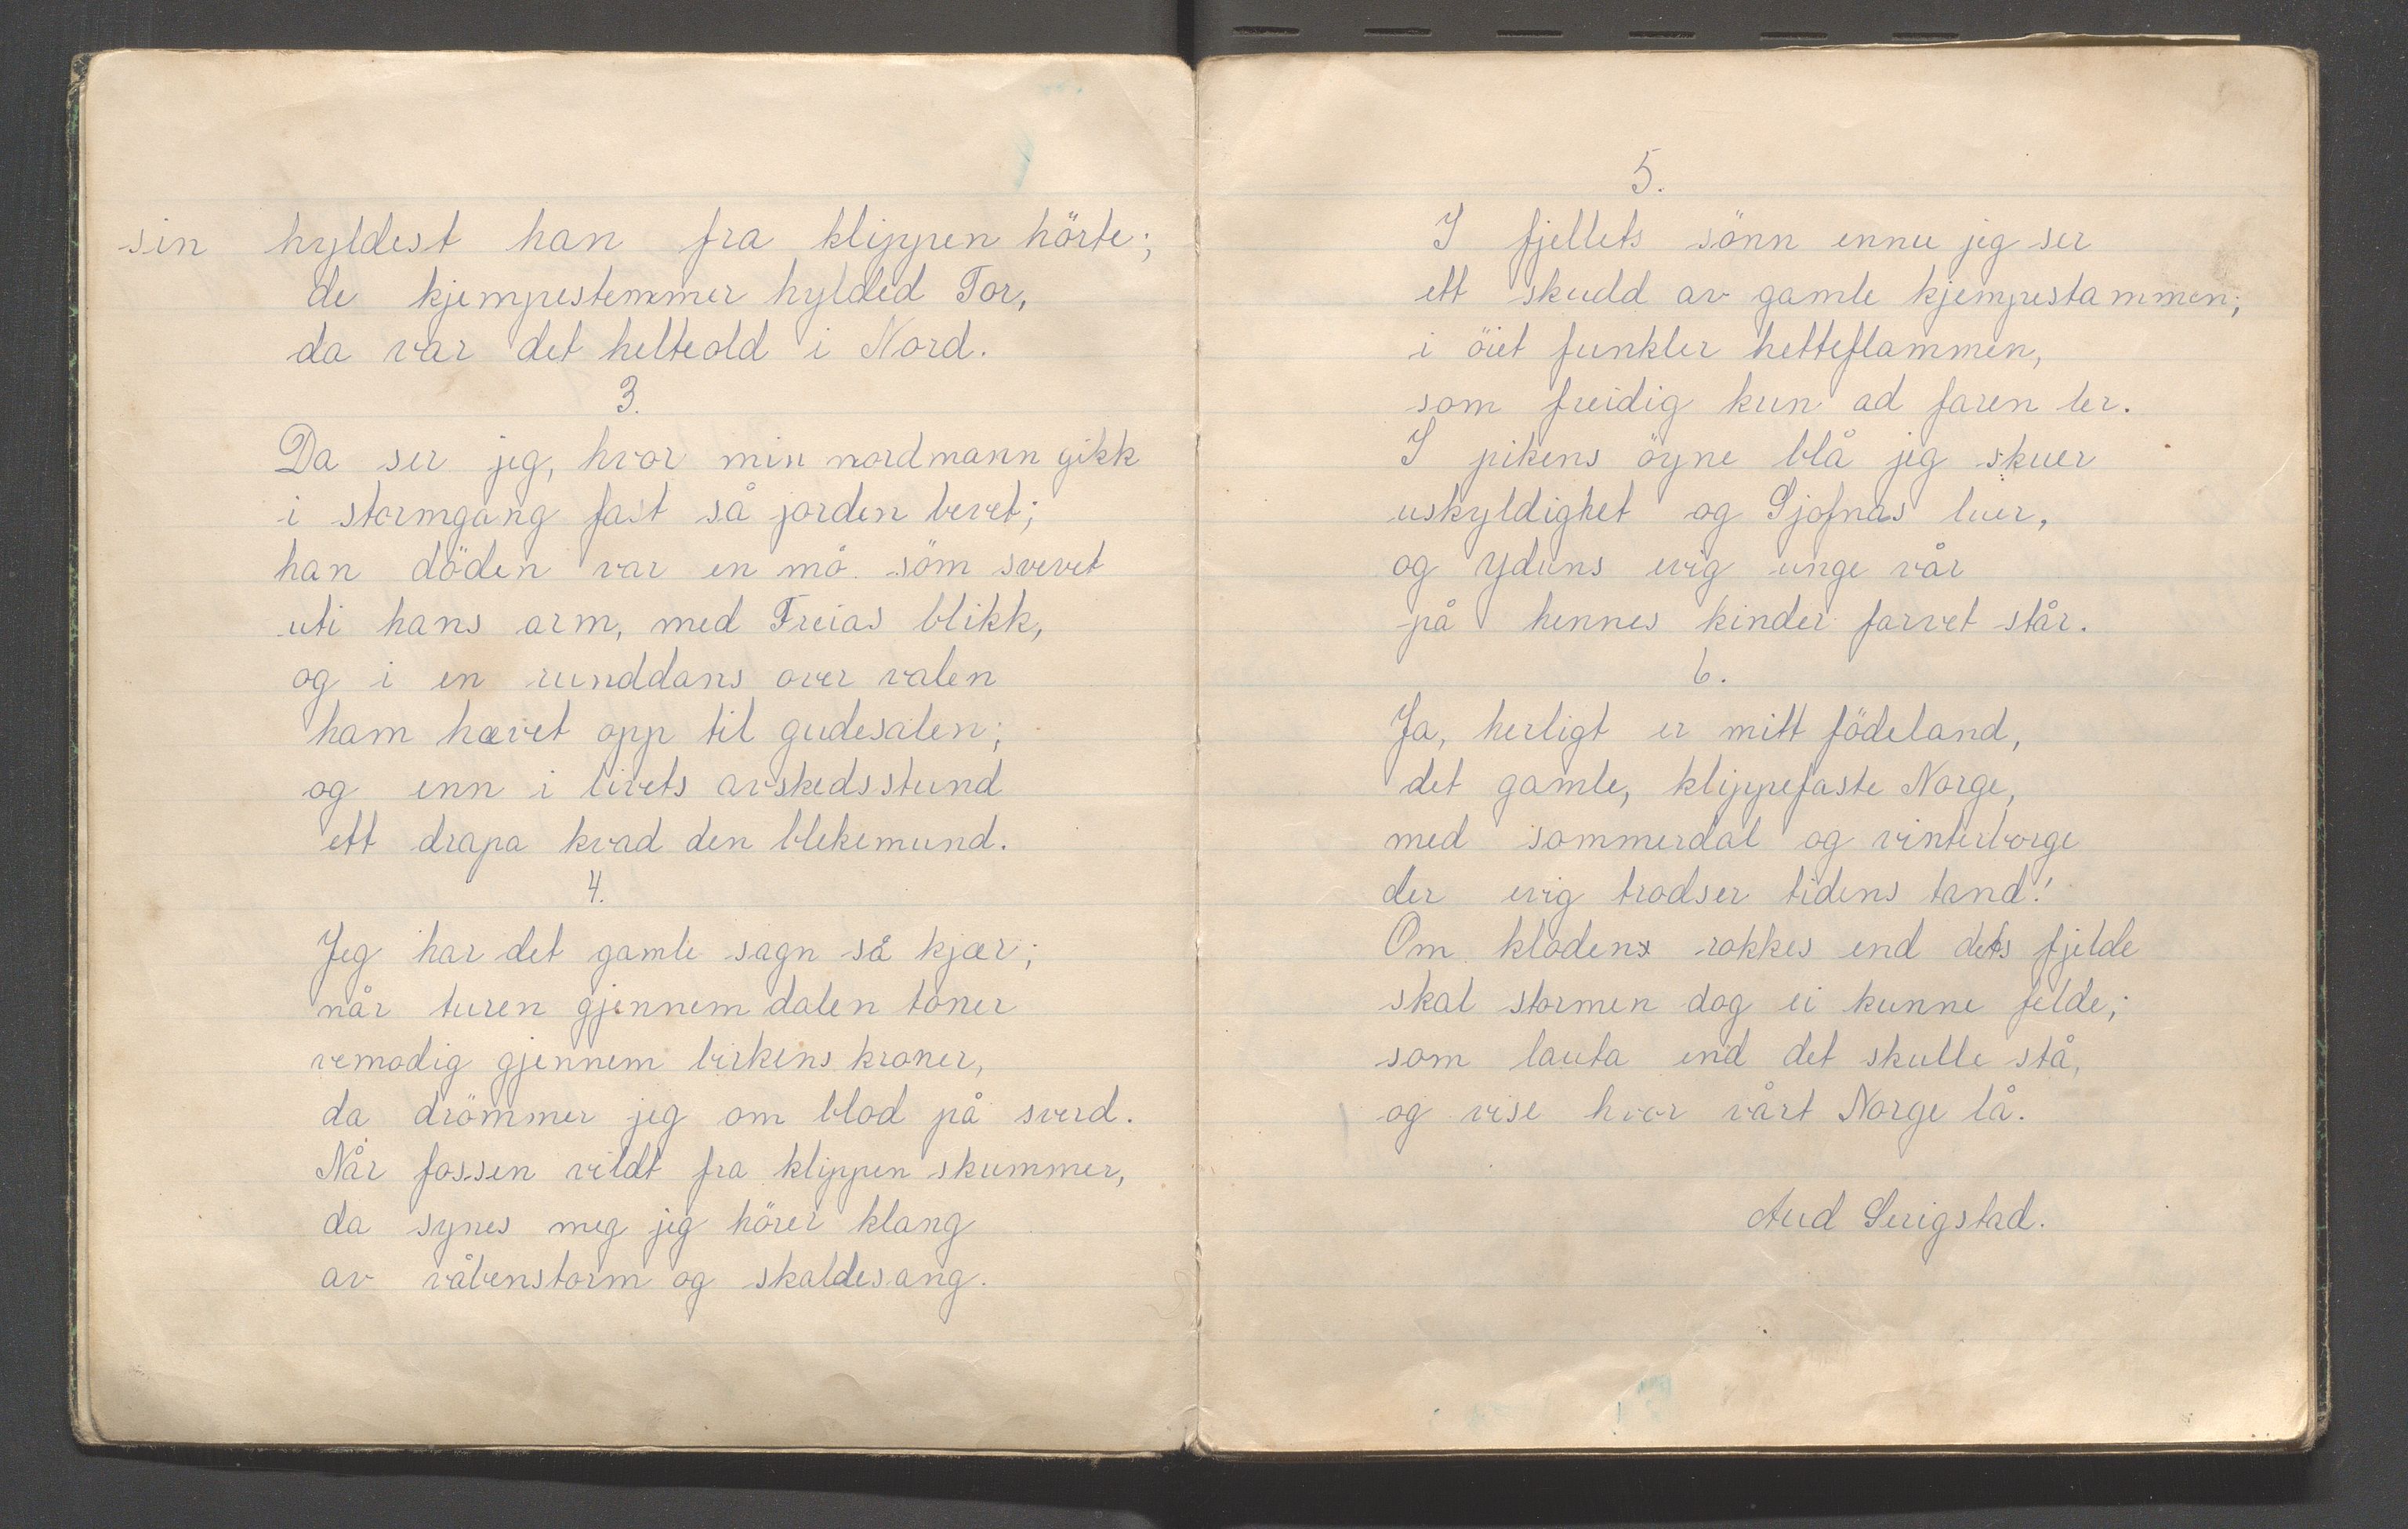 sin hyldest han fra klippen hörte;
de kjempestemmer hylded Tor,
da var det helteold i Nord.
3.
Da ser jeg, hvor min nordmann gikk
i stormgang fast så jorden bevet;
han döden var en mö söm svevet
uti hans arm, med Freias blikk,
og i en runddans over valen
ham hævet opp til gudesalen;
og enn i livets avskedsstund
ett drapa kvad den blekemund.
4.
Jeg har det gamle sagn så kjær;
når luren gjennem dalen toner
vemodig gjennem birkens kroner,
da drömmer jeg om blod på sverd.
Når fossen vildt fra klippen skummer,
da synes meg jeg hörer klang
av våbenstorm og skaldesang.
5.
I fjellets sönn ennu jeg ser
ett skudd av gamle kjempestammen;
i öiet funkler helteflammen,
som freidig kun ad faren ler.
I pikens öyne blå jeg skuer
uskyldighet og Sjofnas luer,
og Yduns evig unge vår
på hennes kinder farvet står.
6.
Ja, herligt er mitt födeland,
det gamle, klippefaste Norge,
med sommerdal og vinterborge
der evig trodser tidens tand!
Om klodens rokkes end dets fjelde
skal stormen dog ei kunne felde;
som bauta end det skulle stå,
og vise hvor vårt Norge lå.
Aud Serigstad.